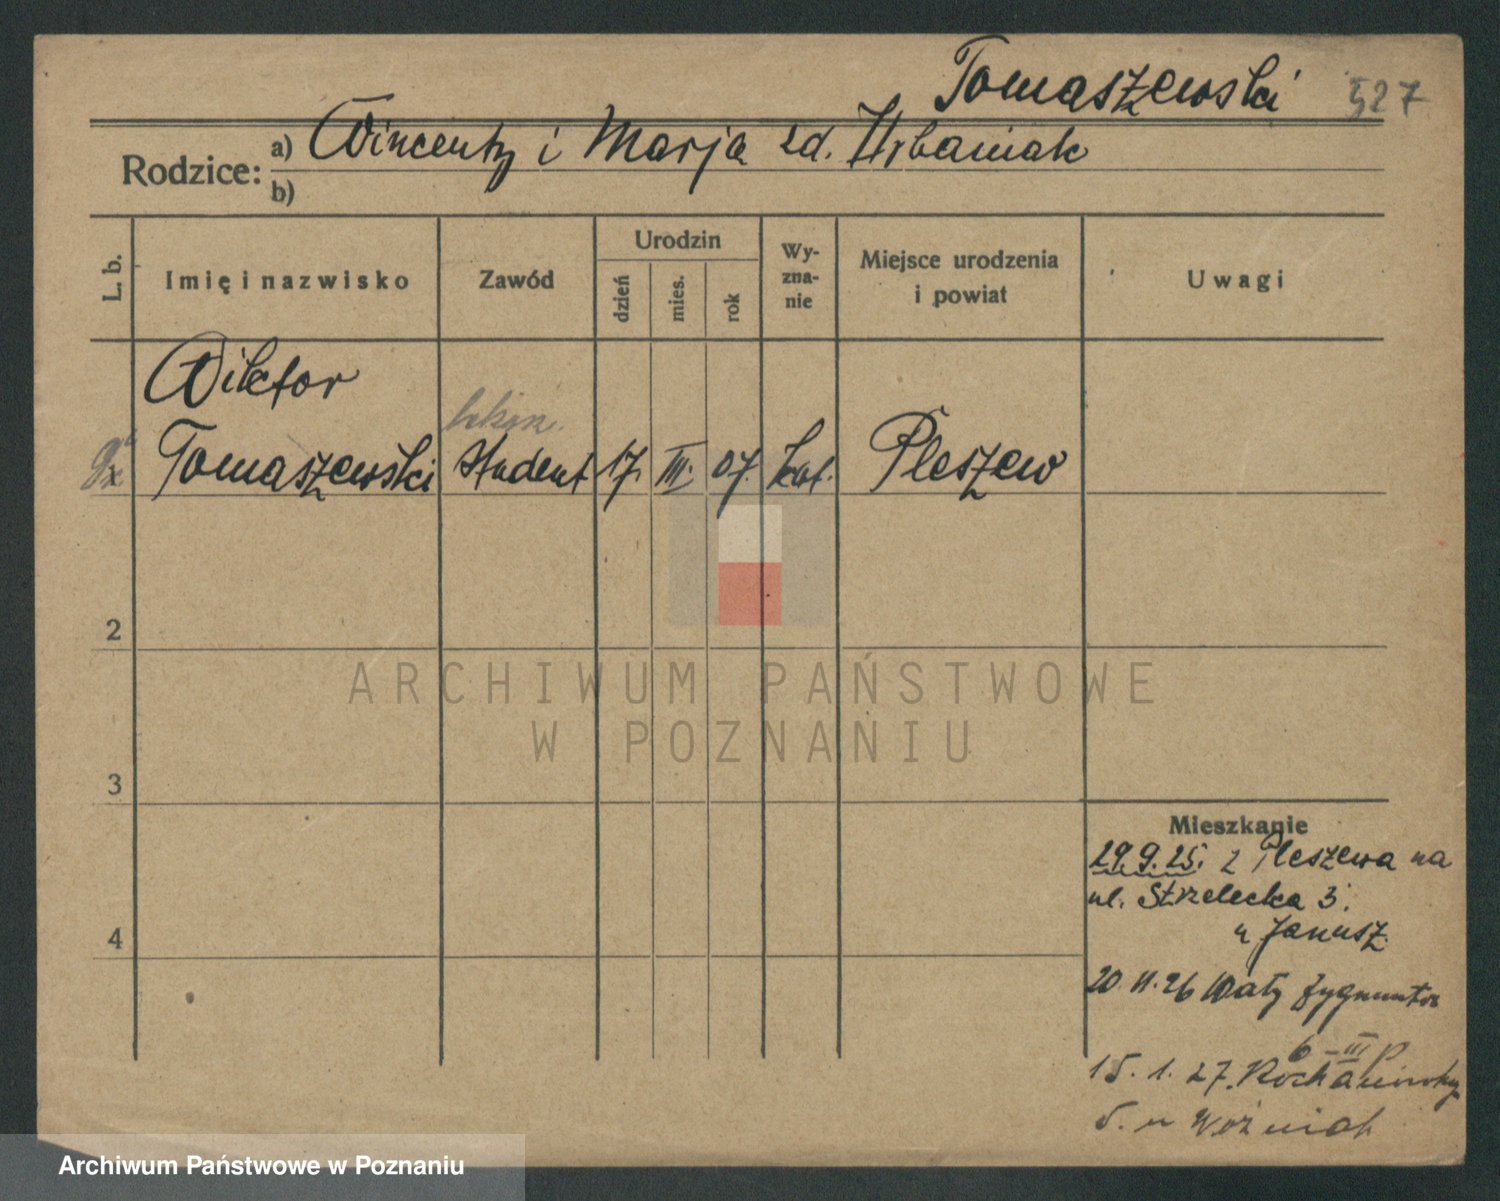 Tomaszewski 527
Rodzice: a) Wincenty i Marja zd. Urbaniak
b)
L. b.
Imię i nazwisko
Zawód
Urodzin
dzień
mies.
rok
Wy-
zna-
nie
Miejsce urodzenia
i powiat
Uwagi
Wiktor
Tomaszewski
student
17.
III.
07.
kat.
Pleszew
2
3
4
Mieszkanie
29.9.25. z Pleszewa na
ul. Strzelecka 3.
u Janusz
20.11.26 Wały Zygmunta
6 - III p
15.1.27. Kochanowsky
5. u Woźniak
ARCHIWUM PAŃSTWOWE
W POZNANIU
Archiwum Państwowe w Poznaniu